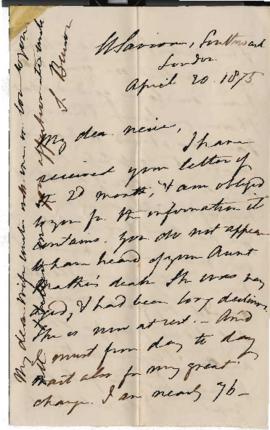 St Saviours, Southwark
London
April 20. 1875
My dear neice, I have
received your letter of
2d month, & am obliged
to you for the information it
contains. You do not appear
to have heard of your Aunt
death. She was very
aged, & had been long declining
She is now at rest. — And
I must from day to day
wait also for my great
change. I am nearly 76 —
My dear wife unites with me in love to you
Your affectionate uncle
S. Benson